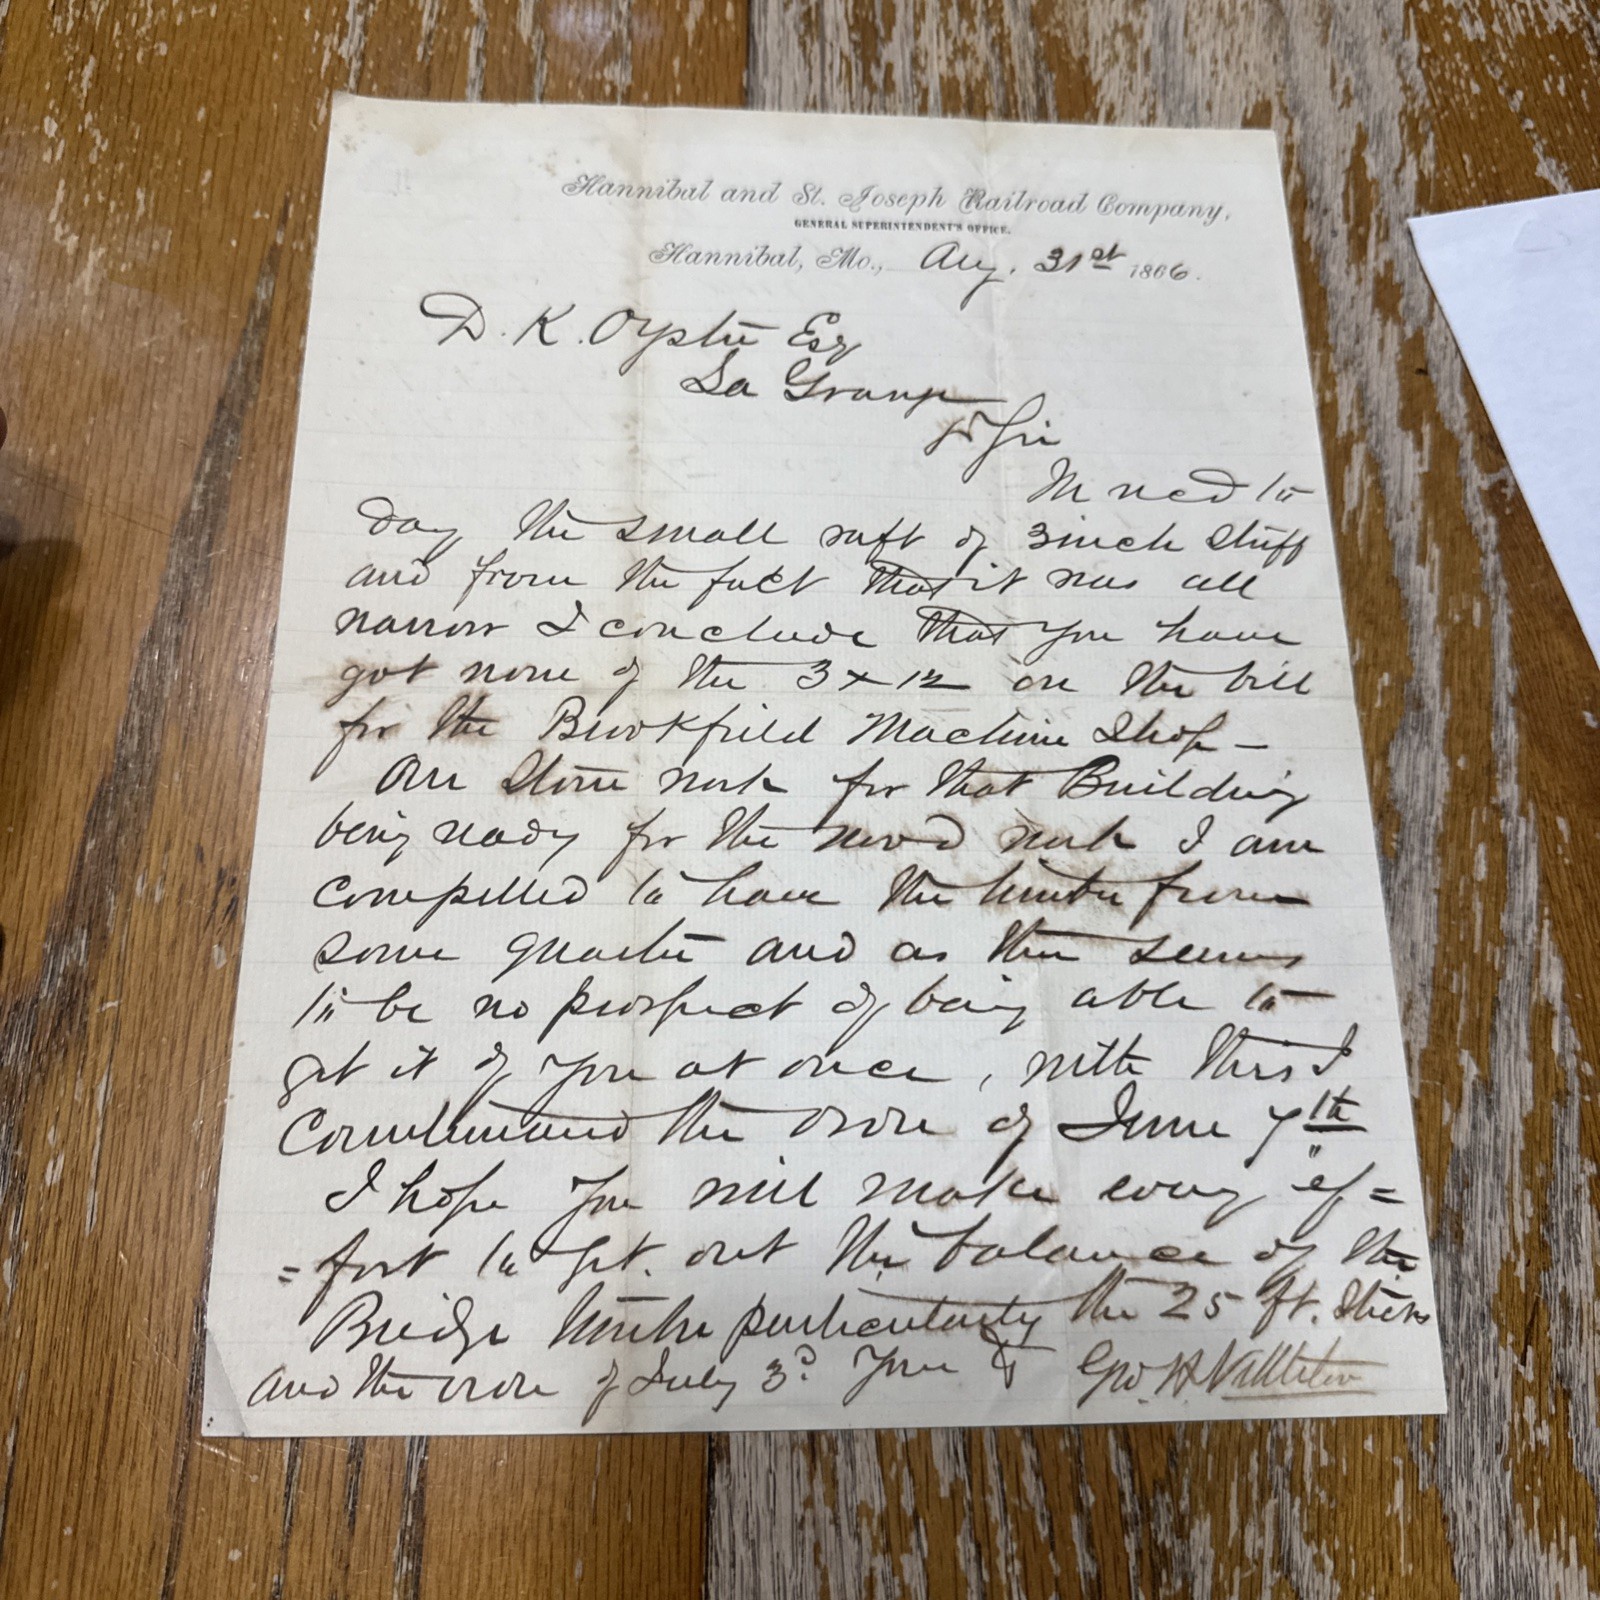 Hannibal and St. Joseph Railroad Company,
GENERAL SUPERINTENDENT'S OFFICE.
Hannibal, Mo., Aug. 31st 1866.
D. K. Oyster Esq
La Grange
Dr Sir
We rec'd to
day the small raft of 3 inch stuff
and from the fact that it was all
narrow I conclude that you have
got none of the 3 x 12 on the bill
for the Brookfield Machine Shop -
Our Stone work for that Building
being ready for the wood work I am
compelled to have the timber from
some quarter and as there seems
to be no prospect of being able to
get it of you at once, with this I
Countermand the order of June 7th
I hope you will make every ef=
=fort to get out the balance of the
Bridge timber particularly the 25 ft. sticks
and the order of July 3d Yours &
Geo. H. Nettleton